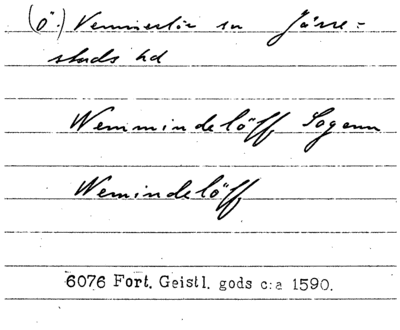 (Ö.) Vemmerlöv sn Järre-
stads hd
Wemmindelöff Sogenn
Wemindelöff
6076 Fort. Geistl. gods c:a 1590.